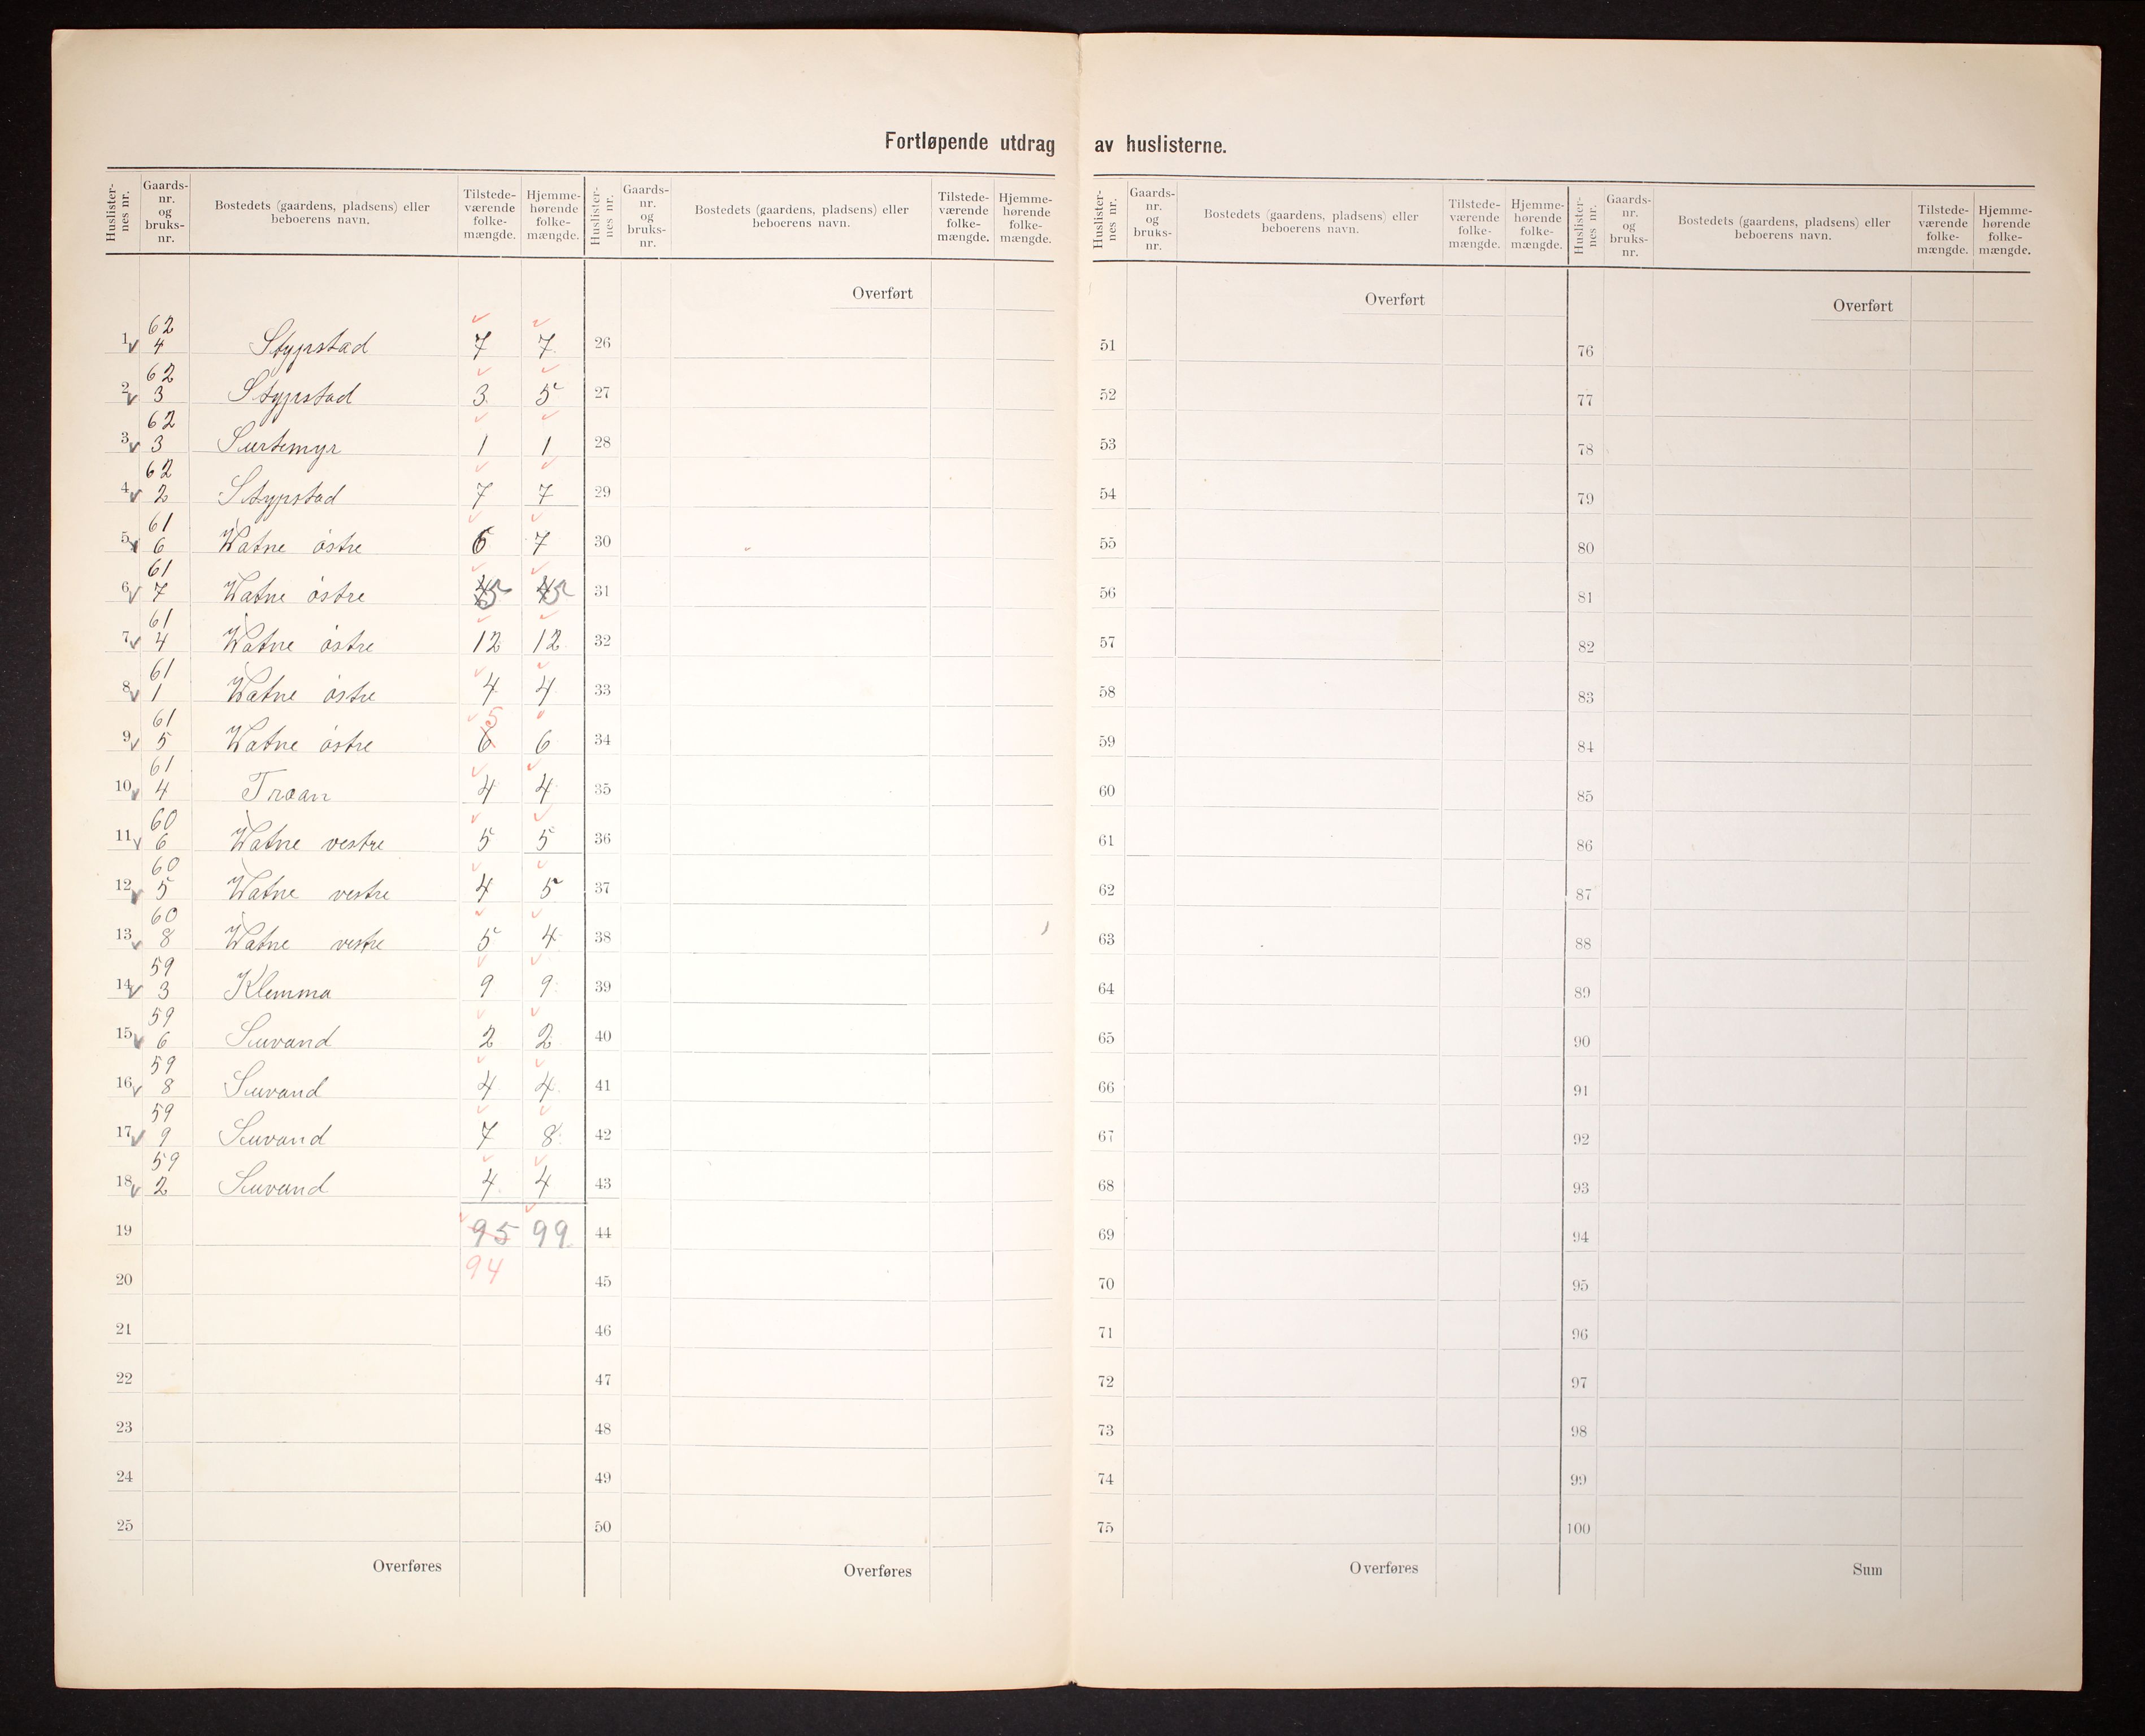 Fortløpende utdrag av huslisterne.
Huslisternes nr. Gaards-nr. og bruks-nr. Bostedets (gaardens, pladsens) eller beboerens navn. Tilstede-værende folke-mængde. Hjemme-hørende folke-mængde.
Huslisternes nr. Gaards-nr. og bruks-nr. Bostedets (gaardens, pladsens) eller beboerens navn. Tilstede-værende folke-mængde. Hjemme-hørende folke-mængde.
Huslisternes nr. Gaards-nr. og bruks-nr. Bostedets (gaardens, pladsens) eller beboerens navn. Tilstede-værende folke-mængde. Hjemme-hørende folke-mængde.
Huslisternes nr. Gaards-nr. og bruks-nr. Bostedets (gaardens, pladsens) eller beboerens navn. Tilstede-værende folke-mængde. Hjemme-hørende folke-mængde.
Overført Overført Overført
1 62 4 Stypstad 7 7 26 51 76
2 62 3 Stypstad 3 5 27 52 77
3 62 3 Surtemyr 1 1 28 53 78
4 62 2 Stypstad 7 7 29 54 79
5 61 6 Watne östre 6 7 30 55 80
6 61 7 Watne östre 5 5 31 56 81
7 61 4 Watne östre 12 12 32 57 82
8 61 1 Watne östre 4 4 33 58 83
9 61 5 Watne östre 6 5 6 34 59 84
10 61 4 Troan 4 4 35 60 85
11 60 6 Watne vestre 5 5 36 61 86
12 60 5 Watne vestre 4 5 37 62 87
13 60 8 Watne vestre 5 4 38 63 88
14 59 3 Klemma 9 9 39 64 89
15 59 6 Suvand 2 2 40 65 90
16 59 8 Suvand 4 4 41 66 91
17 59 9 Suvand 7 8 42 67 92
18 59 2 Suvand 4 4 43 68 93
19 95 99 44 69 94
20 94 45 70 95
21 46 71 96
22 47 72 97
23 48 73 98
24 49 74 99
25 50 75 100
Overføres Overføres Overføres Sum